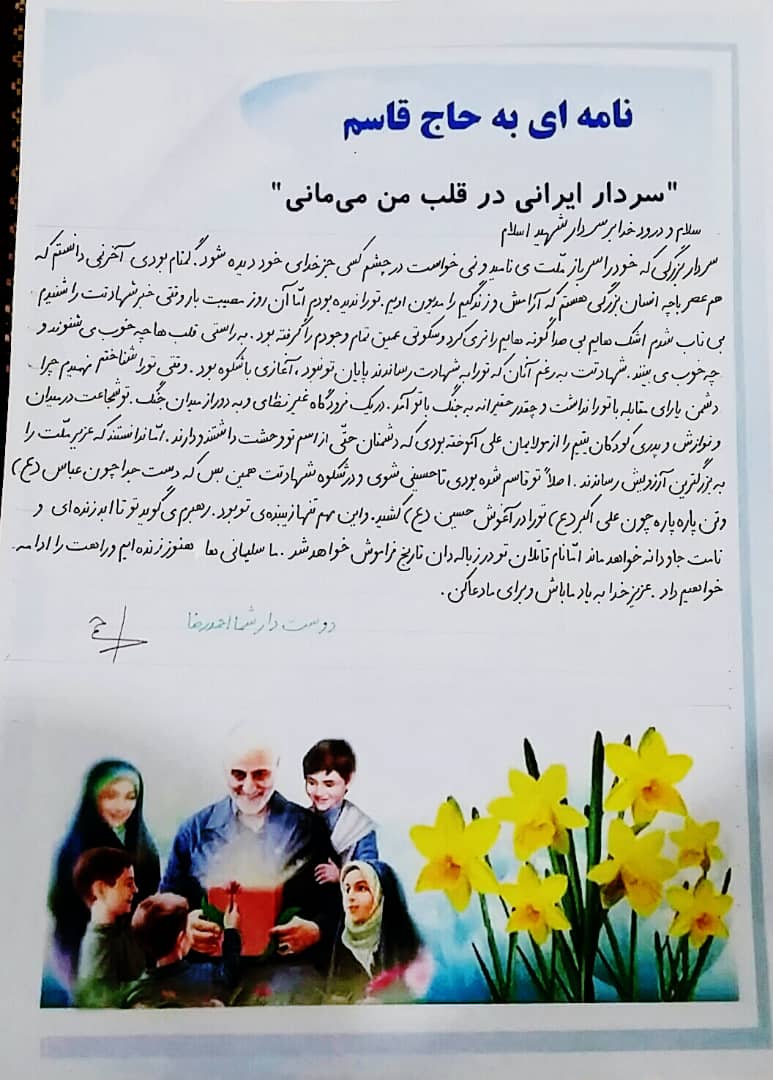 نامه ای به حاج قاسم
"سردار ایرانی در قلب من می‌مانی"
سلام و درود خدا بر سردار شهید اسلام
سردار بزرگی که خود را سرباز ملّت می نامید و نمی خواست در چشم کسی جز خدای خود دیده شود. گمنام بودی آخر نمی دانستم که
هم عصر با چه انسان بزرگی هستم که آرامش و زندگیم را مدیون اویم. تو را ندیده بودم امّا آن روز مصیبت بار وقتی خبر شهادتت را شنیدم
بی تاب شدم اشک هایم بی صدا گونه هایم را تر می کرد و سکوتی عمیق تمام وجودم را گرفته بود. به راستی قلب ها چه خوب می شنوند و
چه خوب می بینند. شهادتت به رغم آنان که تو را به شهادت رساندند پایان تو نبود، آغازی با شکوه بود. وقتی تو را شناختم فهمیدم چرا
دشمن یارای مقابله با تو را نداشت و چقدر حقیرانه به جنگ با تو آمد. در یک فرودگاه غیر نظامی و به دور از میدان جنگ. تو شجاعت در میدان
و نوازش و پدری کودکان یتیم را از مولایمان علی آموخته بودی که دشمنان حتّی از اسم تو وحشت داشتند و دارند. امّا ندانستند که عزیز ملّت را
به بزرگترین آرزویش رساندند. اصلاً تو قاسم شده بودی تا حسینی شوی و در شکوه شهادتت همین بس که دست جدا چون عباس (ع)
و تن پاره پاره چون علی اکبر (ع) تو را در آغوش حسین (ع) کشید. و این مهم تنها زیبنده ی تو بود. رهبرم می گوید تو تا ابد زنده ای و
نامت جاودانه خواهد ماند امّا نام قاتلان تو در زباله دان تاریخ فراموش خواهد شد. ما سلیمانی ها هنوز زنده ایم و راهت را ادامه
خواهیم داد. عزیز خدا به یاد ما باش و برای ما دعا کن.
دوست دار شما احمدرضا